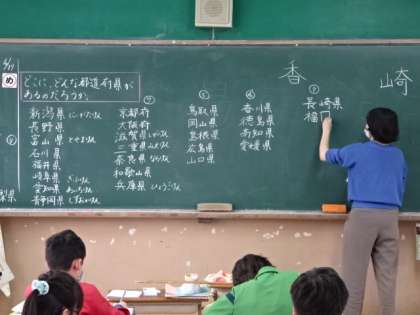 め
どこに、どんな都道府県が
あるのだろうか。
新潟県 にいがたけん
長野県
富山県 とやまけん
石川県
福井県
岐阜県 ぎふけん
愛知県 あいちけん
静岡県 しずおかけん
京都府
大阪府
滋賀県 しがけん
三重県 みえけん
奈良県 ならけん
和歌山県
兵庫県 ひょうごけん
鳥取県
岡山県
島根県
広島県
山口県
香川県
徳島県
高知県
愛媛県
香
長崎県
福
山崎
梨県